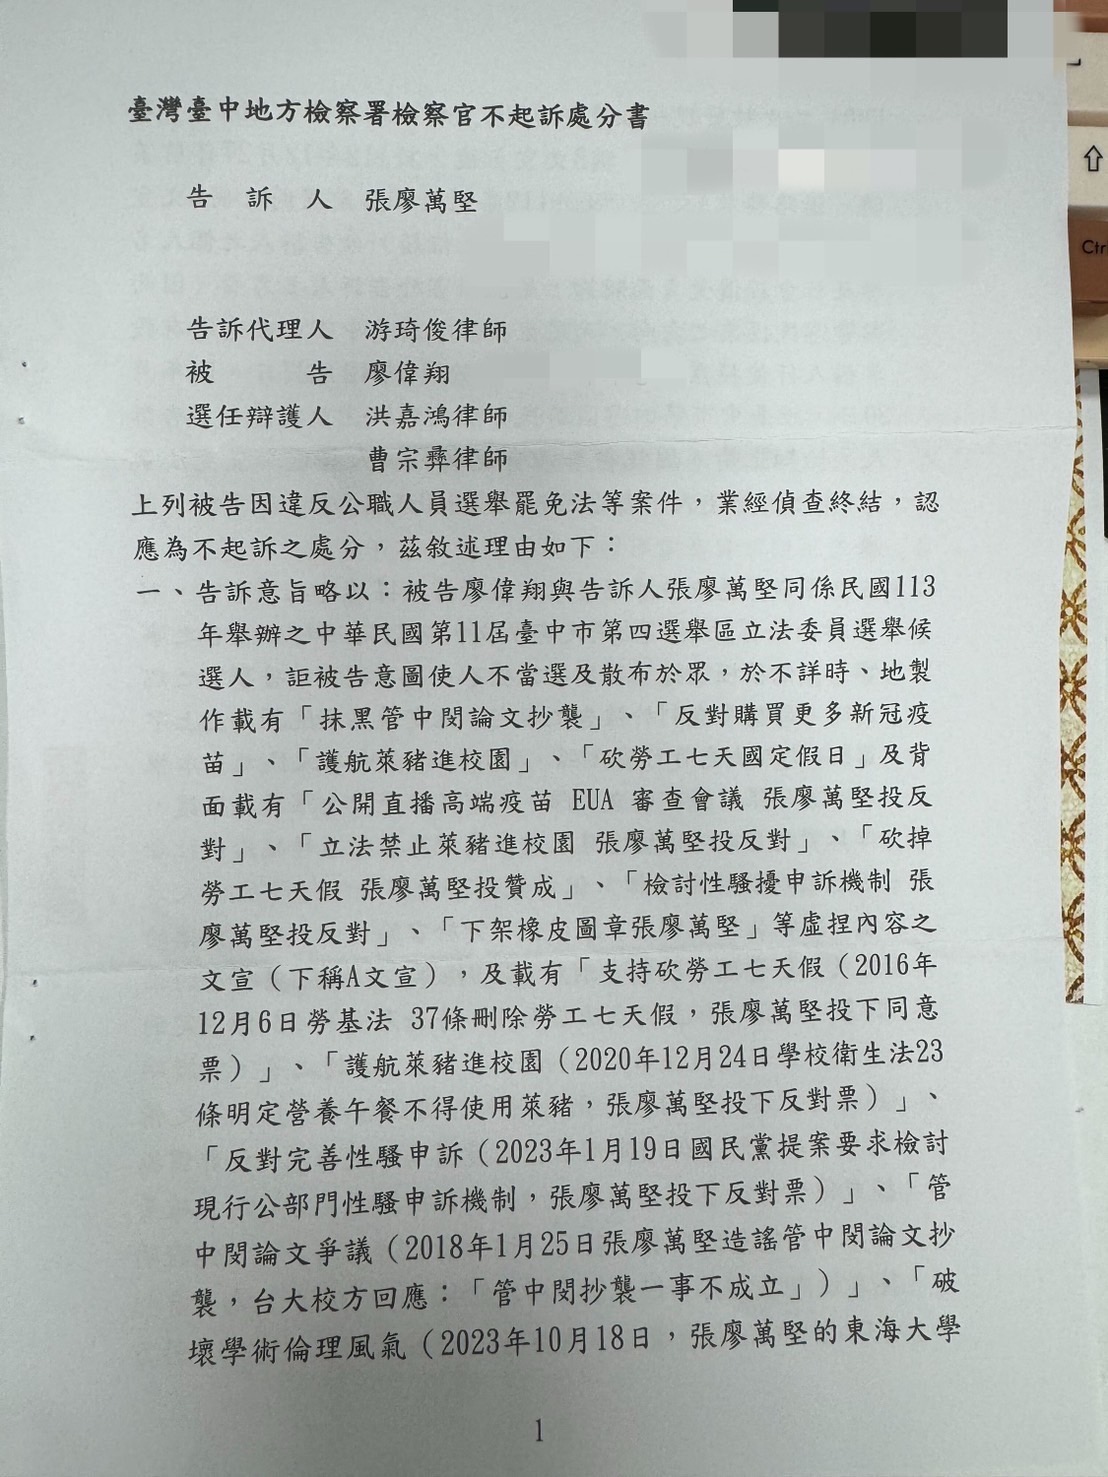 臺灣臺中地方檢察署檢察官不起訴處分書
告訴人 張廖萬堅
告訴代理人 游琦俊律師
被告 廖偉翔
選任辯護人 洪嘉鴻律師
曹宗彝律師
上列被告因違反公職人員選舉罷免法等案件，業經偵查終結，認
應為不起訴之處分，茲敘述理由如下：
一、告訴意旨略以：被告廖偉翔與告訴人張廖萬堅同係民國113
年舉辦之中華民國第11屆臺中市第四選舉區立法委員選舉候
選人，詎被告意圖使人不當選及散布於眾，於不詳時、地製
作載有「抹黑管中閔論文抄襲」、「反對購買更多新冠疫
苗」、「護航萊豬進校園」、「砍勞工七天國定假日」及背
面載有「公開直播高端疫苗 EUA 審查會議 張廖萬堅投反
對」、「立法禁止萊豬進校園 張廖萬堅投反對」、「砍掉
勞工七天假 張廖萬堅投贊成」、「檢討性騷擾申訴機制 張
廖萬堅投反對」、「下架橡皮圖章張廖萬堅」等虛捏內容之
文宣（下稱A文宣），及載有「支持砍勞工七天假（2016年
12月6日勞基法 37條刪除勞工七天假，張廖萬堅投下同意
票）」、「護航萊豬進校園（2020年12月24日學校衛生法23
條明定營養午餐不得使用萊豬，張廖萬堅投下反對票）」、
「反對完善性騷申訴（2023年1月19日國民黨提案要求檢討
現行公部門性騷申訴機制，張廖萬堅投下反對票）」、「管
中閔論文爭議（2018年1月25日張廖萬堅造謠管中閔論文抄
襲，台大校方回應：「管中閔抄襲一事不成立」）」、「破
壞學術倫理風氣（2023年10月18日，張廖萬堅的東海大學
1
Ctr